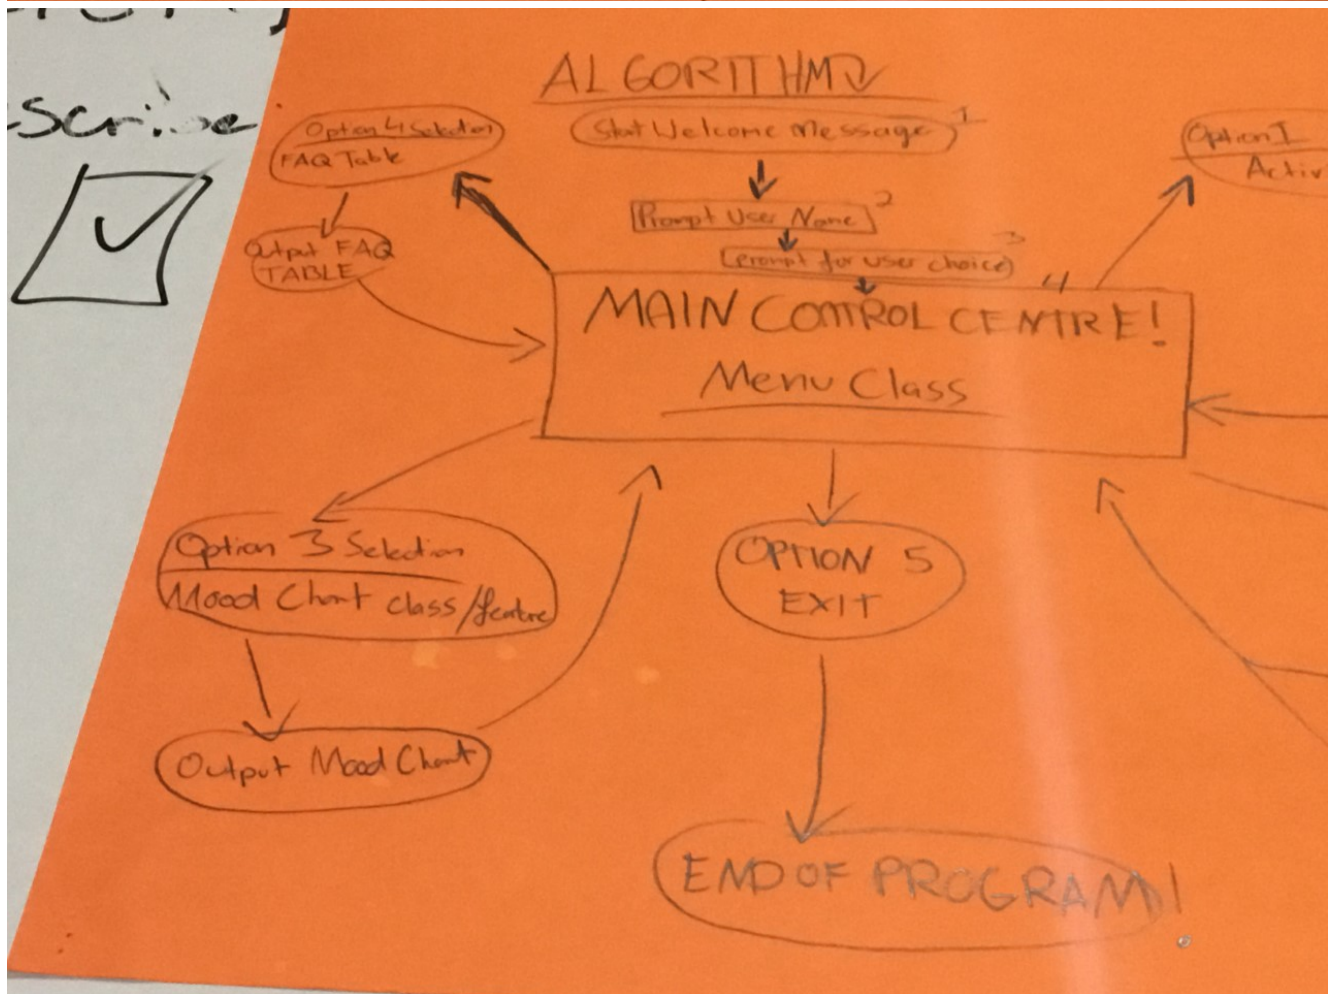 scribe
ALGORITHM
Start Welcome Message 1
Prompt User Name 2
(prompt for user choice) 3
4
MAIN CONTROL CENTRE!
Menu Class
Option 4 Selection
FAQ Table
Output FAQ
TABLE
Option 1
Activ
Option 3 Selection
Mood Chart class/feature
Output Mood Chart
OPTION 5
EXIT
END OF PROGRAM!